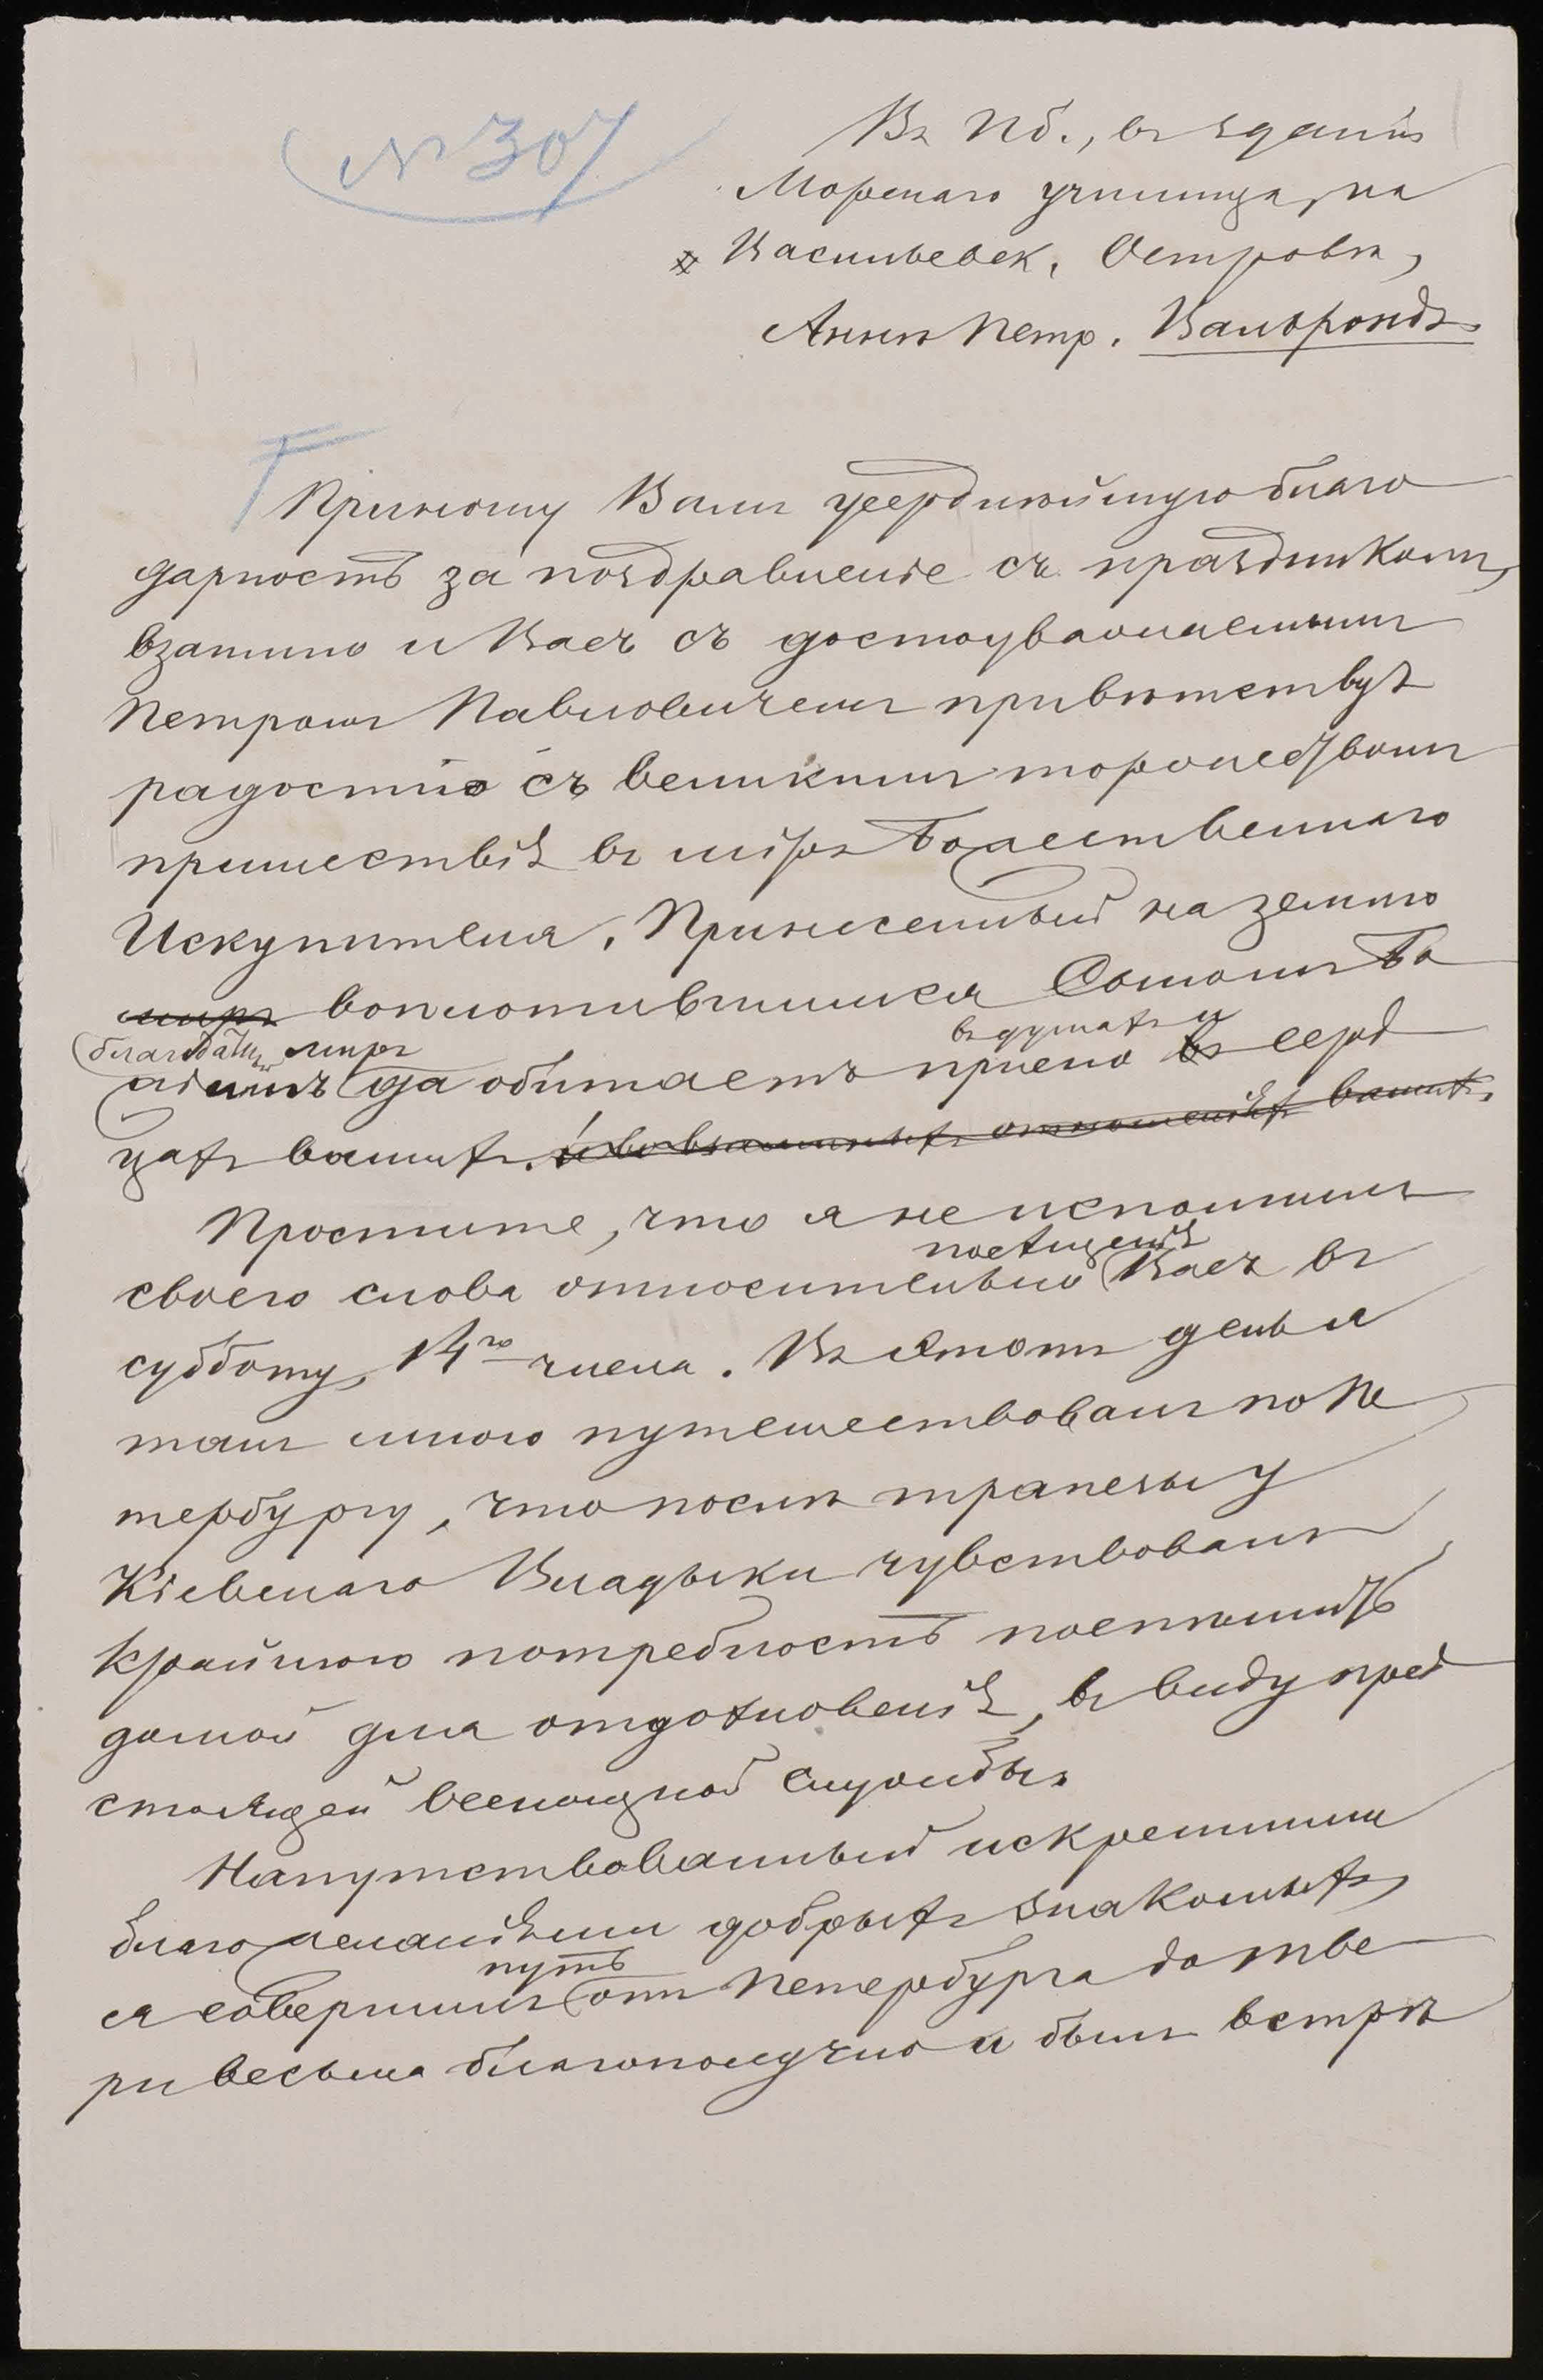 № 307
Въ Пб., въ зданіи
Морскаго училища, на
Васильевск. Островѣ,
Аннѣ Петр. Вальрондъ.
Приношу Вамъ усерднѣйшую благо
дарность за поздравленіе съ праздникомъ,
взаимно и Васъ съ достоуважаемымъ
Петромъ Павловичемъ привѣтствую
радостію съ великимъ торжествомъ
пришествія въ міръ Божественнаго
Искупителя. Принесенный на землю
миръ воплотившимся Сыномъ Бо
благодатный миръ
жіимъ да обитаетъ присно въ серд
въ душахъ и
цахъ вашихъ. и во взаимныхъ отношеніяхъ вашихъ.
Простите, что я не исполнилъ
посѣщенія
своего слова относительно Васъ въ
субботу, 14го числа. Въ этотъ день я
такъ много путешествовалъ по Пе
тербургу, что послѣ трапезы у
Кіевскаго Владыки чувствовалъ
крайнюю потребность поспѣшить
домой для отдохновенія, въ виду пред
стоящей всенощной службы.
Напутствованный искренними
благожеланіями добрыхъ знакомыхъ,
путь
я совершилъ отъ Петербурга до Тве
ри весьма благополучно и былъ встрѣ